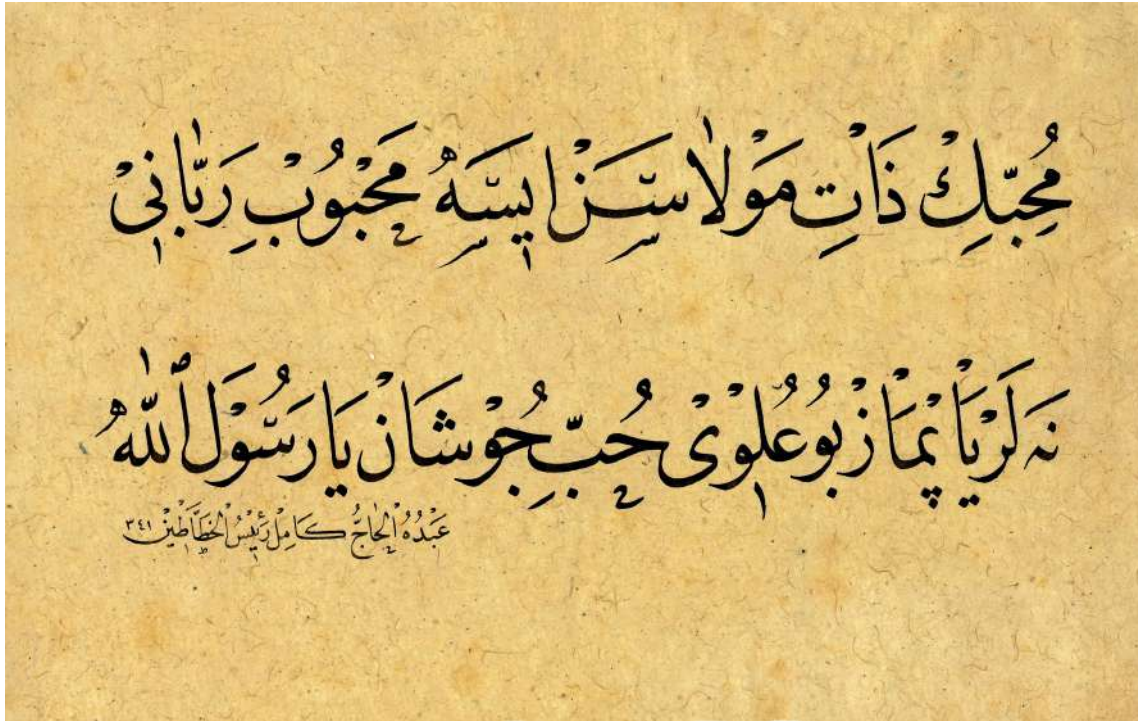 مُحِبّڭ ذَاتِ مَوْلَا سَنْ ايسَهْ مَحْبُوبِ رَبَّانِيْ
نَه لَرْ يَاپْمَازْ بُو عُلْوِيْ حُبِّ جُوشَانْ يَا رَسُولَ ٱللّٰهْ
عَبْدُهُ الْحَاجُّ كَامِلْ رَئِيْسُ الْخَطَّاطِيْنْ ٣٤١